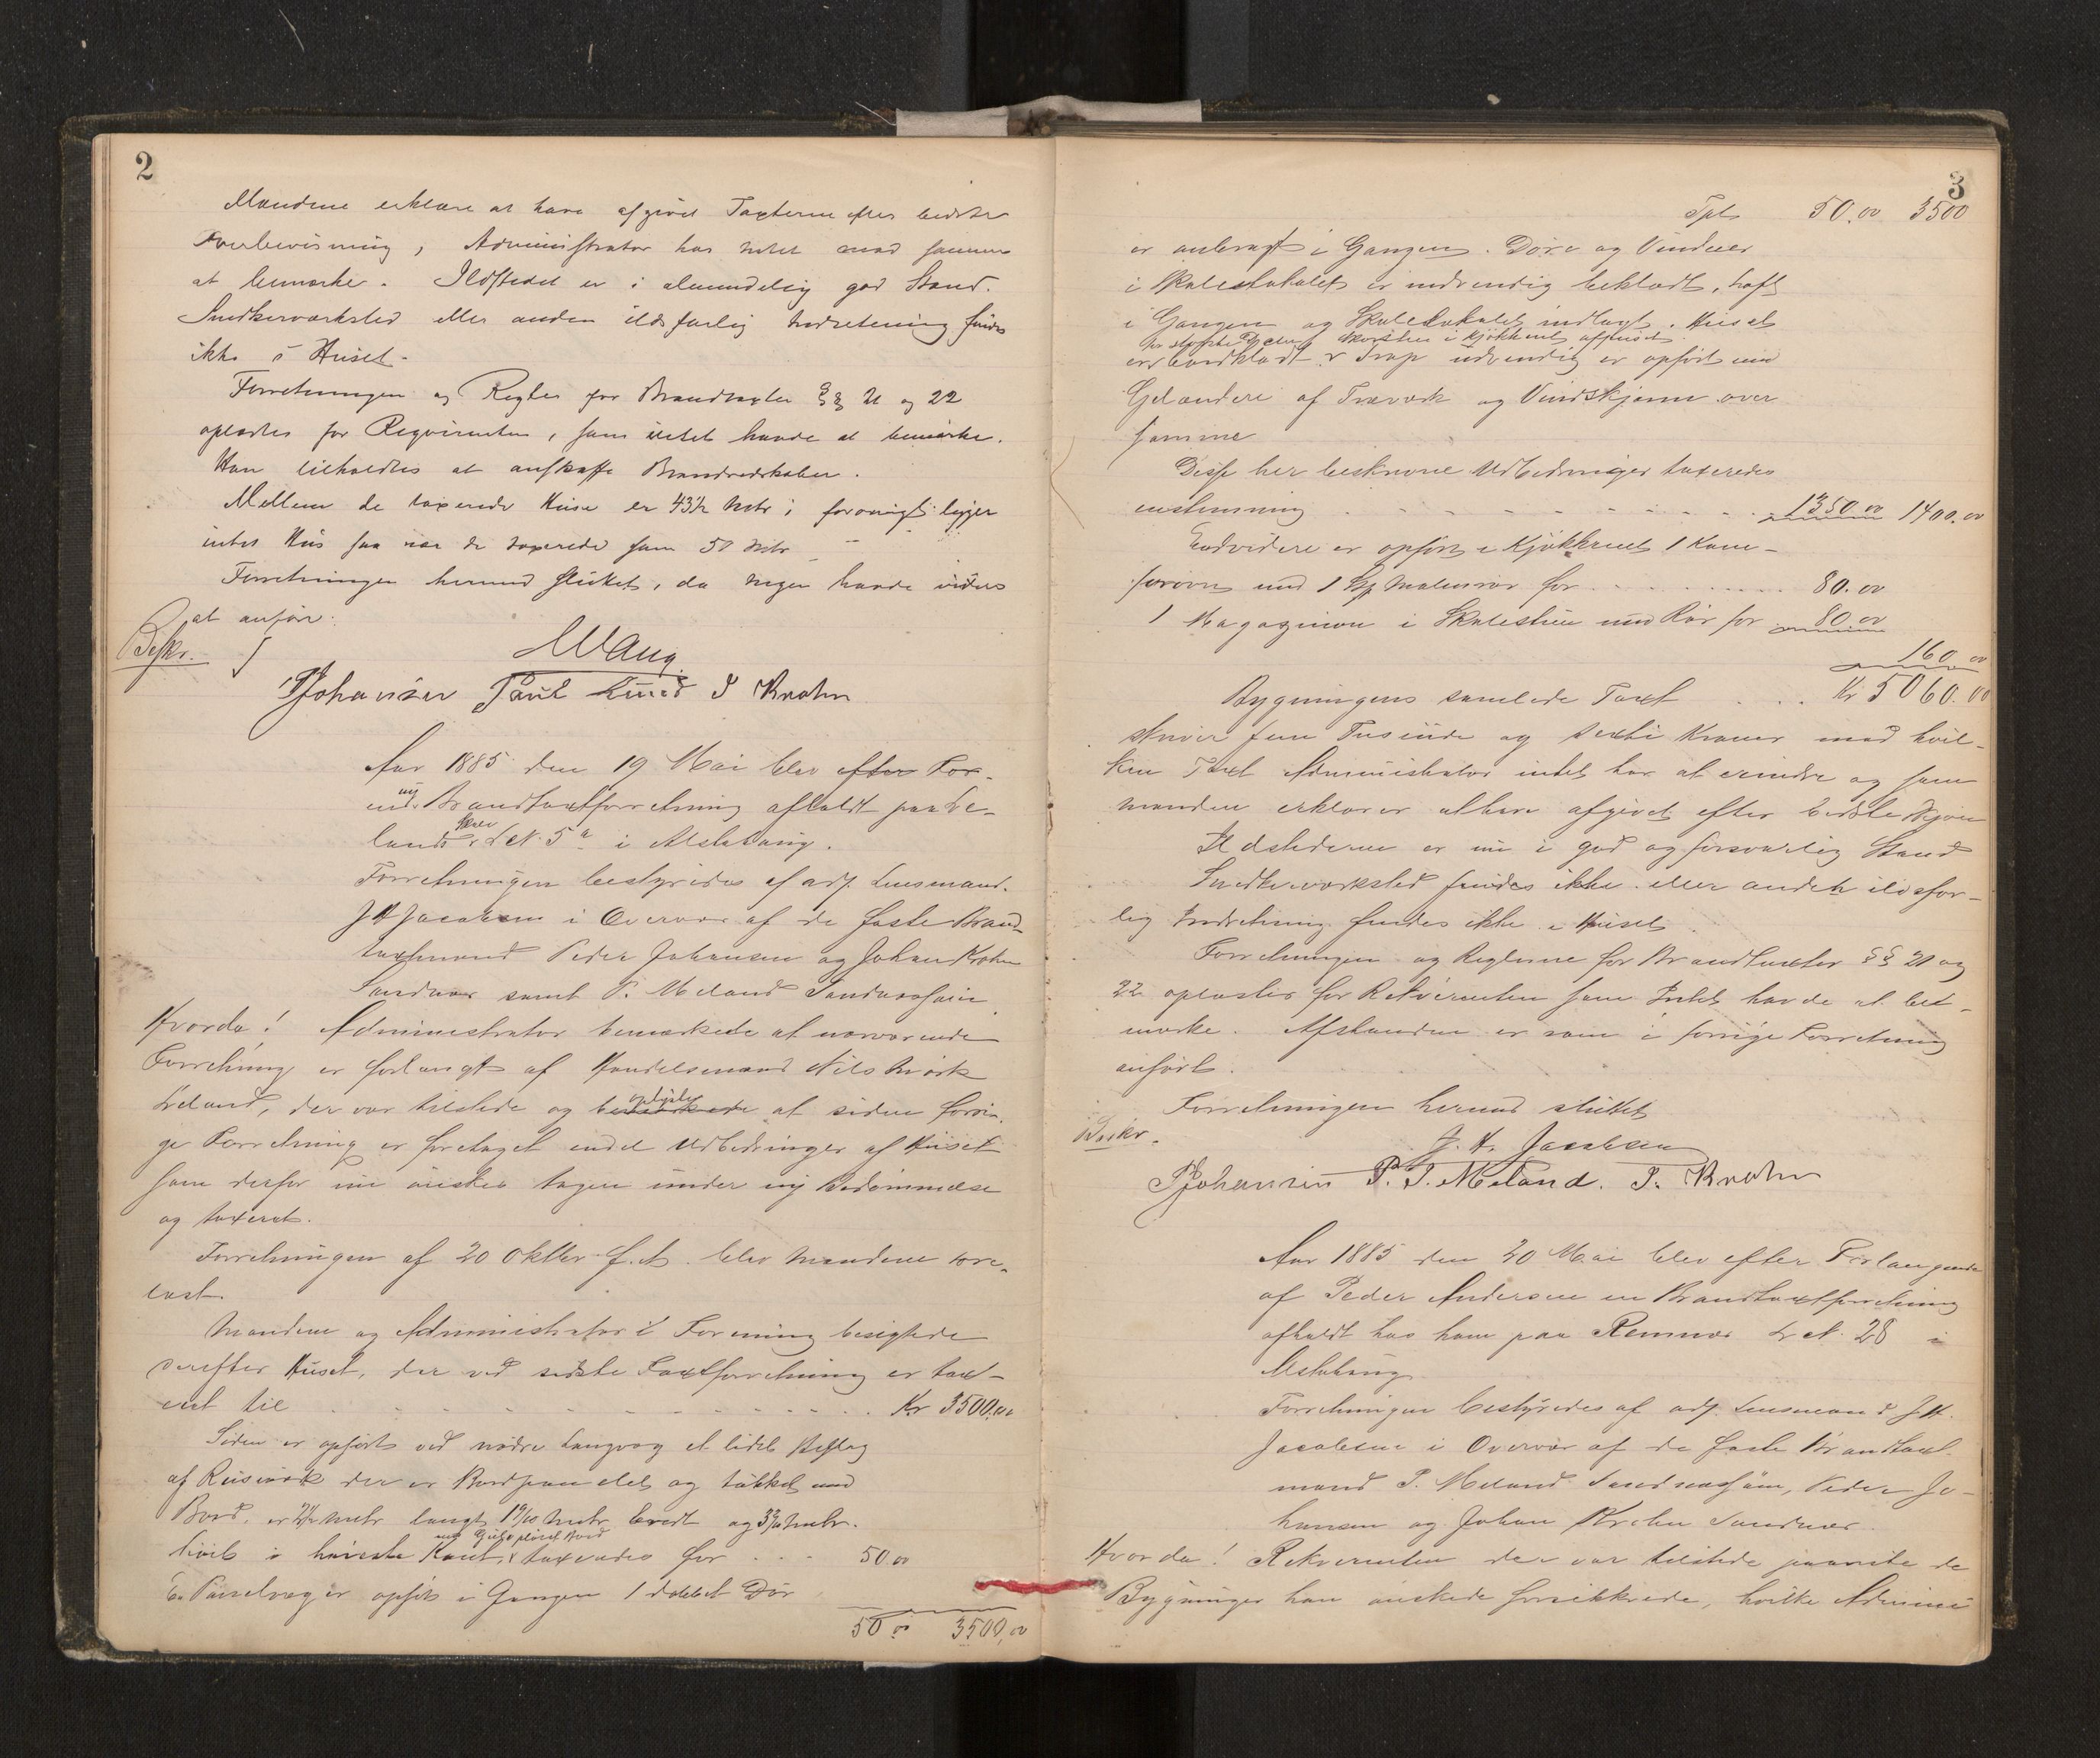 2
Mændene erklære at have afgivet Taxterne efter bedste
Overbevisning, Administrator har intet mod samme
at bemærke. Ildstedet er i almindelig god Stand.
Snedkerværksted eller anden ildsfarlig Indretening findes
ikke i Huset.
Forretningen og Regler for Brandtaxter §§ 21 og 22
oplæstes for Reqvirenten, som intet havde at bemærke.
Han tilholdtes at anskaffe Brandredskaber.
Mellem de taxerede Huse er 43½ Metr; forøvrigt ligger
intet Hus saa nær de taxerede som 50 Metr
Forretningen hermed sluttet, da ingen havde videre
at anføre.
Beskr.
MWang
PJohansen Paul Lund J Krohn
Aar 1885 den 19 Mai blev efter For-
ny
end. Brandtaxtforretning afholdt paa Le-
land L N. 5a i Alstahaug.
Forretningen bestyredes af adj. Lensmand.
J H Jacobsen i Overvær af de faste Brand-
taxtmænd Peder Johansen og Johan Krohn
Sandnæs samt P. Meland Sandnæssjøen
Hvorda! Administrator bemærkede at nærværende
Forretning er forlangt af Handelsmand Nils Mørk
Leland, der var tilstede og bemærkede at siden forri-
oplyste
ge Forretning er foretaget endel Udbedringer af Huset
som derfor nu ønskes tagen under ny Bedømmelse
og taxeret.
Forretningen af 20 Oktbr f. A. blev Mændene fore-
læst.
Mændene og Administrator i Forening besigtede
derefter Huset, der ved sidste Taxtforretning er tax-
eret til . . . . . Kr 3500,00
Siden er opført ved nedre Langvæg et lidet Påslag
af Reisværk der er Bordpanelet og tækket med
Bord. er Metr langt Metr bredt og Metr.
med Gulv pløiet Bord
høit i høieste Kant, taxeredes for . . . 50.00
En Panelvæg er opført i Gangen 1 dobbelt Dør
50.00 3500,00
3
Tpt 50.00 3500
er anbragt i Gangen. Døre og Vinduer
i Skolelokalet er indvendig beklædt, Loft
i Gangen og Skolelokalet indlagt. Huset
Skorsten i Kjøkkenet afpudset
er bordklædt. Trap udvendig er opført med
Gelændere af Træværk og Vindskjerm over
samme
Disse her beskrevne Udbedringer taxeredes
enstemmig . . . . . 1350.00 1400.00
Endvidere er opført i Kjøkkenet 1 Kom-
forovn med 1 for . . . . . 80.00
1 Magazinovn i Skolestuen med Rør for 80.00
160.00
Bygningens samlede Taxt . . . . Kr 5060.00
skriver fem Tusinde og sexti Kroner mod hvil-
ken Taxt Administrator intet har at erindre og som
mændene erklærer at have afgivet efter bedste Skjøn
Ildstederne er nu i god og forsvarlig Stand
Snedkerværksted findes ikke eller andet ildsfar-
lig Indretning findes ikke i Huset.
Forretningen og Reglerne for Brandtaxter §§ 21 og
22 oplæstes for Rekvirenten som Intet havde at be-
mærke. Afstanden er som i forrige Forretning
anført.
Forretningen hermed sluttet
Beskr.
J. H. Jacobsen
PJohansen P. J. Meland. J. Krohn
Aar 1885 den 20 Mai blev efter Forlangende
af Peder Andersen en Brandtaxtforretning
afholdt hos ham paa Remnes L N. 28 i
Alstahaug
Forretningen bestyredes af adj. Lensmand J H.
Jacobsen i Overvær af de faste Brandtaxt-
mænd P. Meland Sandnæssjøen, Peder Jo-
hansen og Johan Krohn Sandnæs.
Hvorda! Rekvirenten der var tilstede paaviste de
Bygninger han ønskede forsikkrede, hvilke Admini